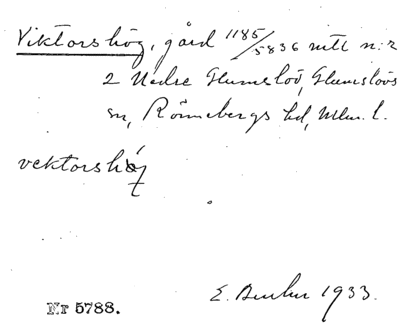 Viktorshög, gård 1185/5836 mtl n:r
2 Nedre Glumslöv, Glumslövs
sn, Rönnebergs hd, Mlm. l.
vektorshǿg
E. 1933.
Nr 5788.